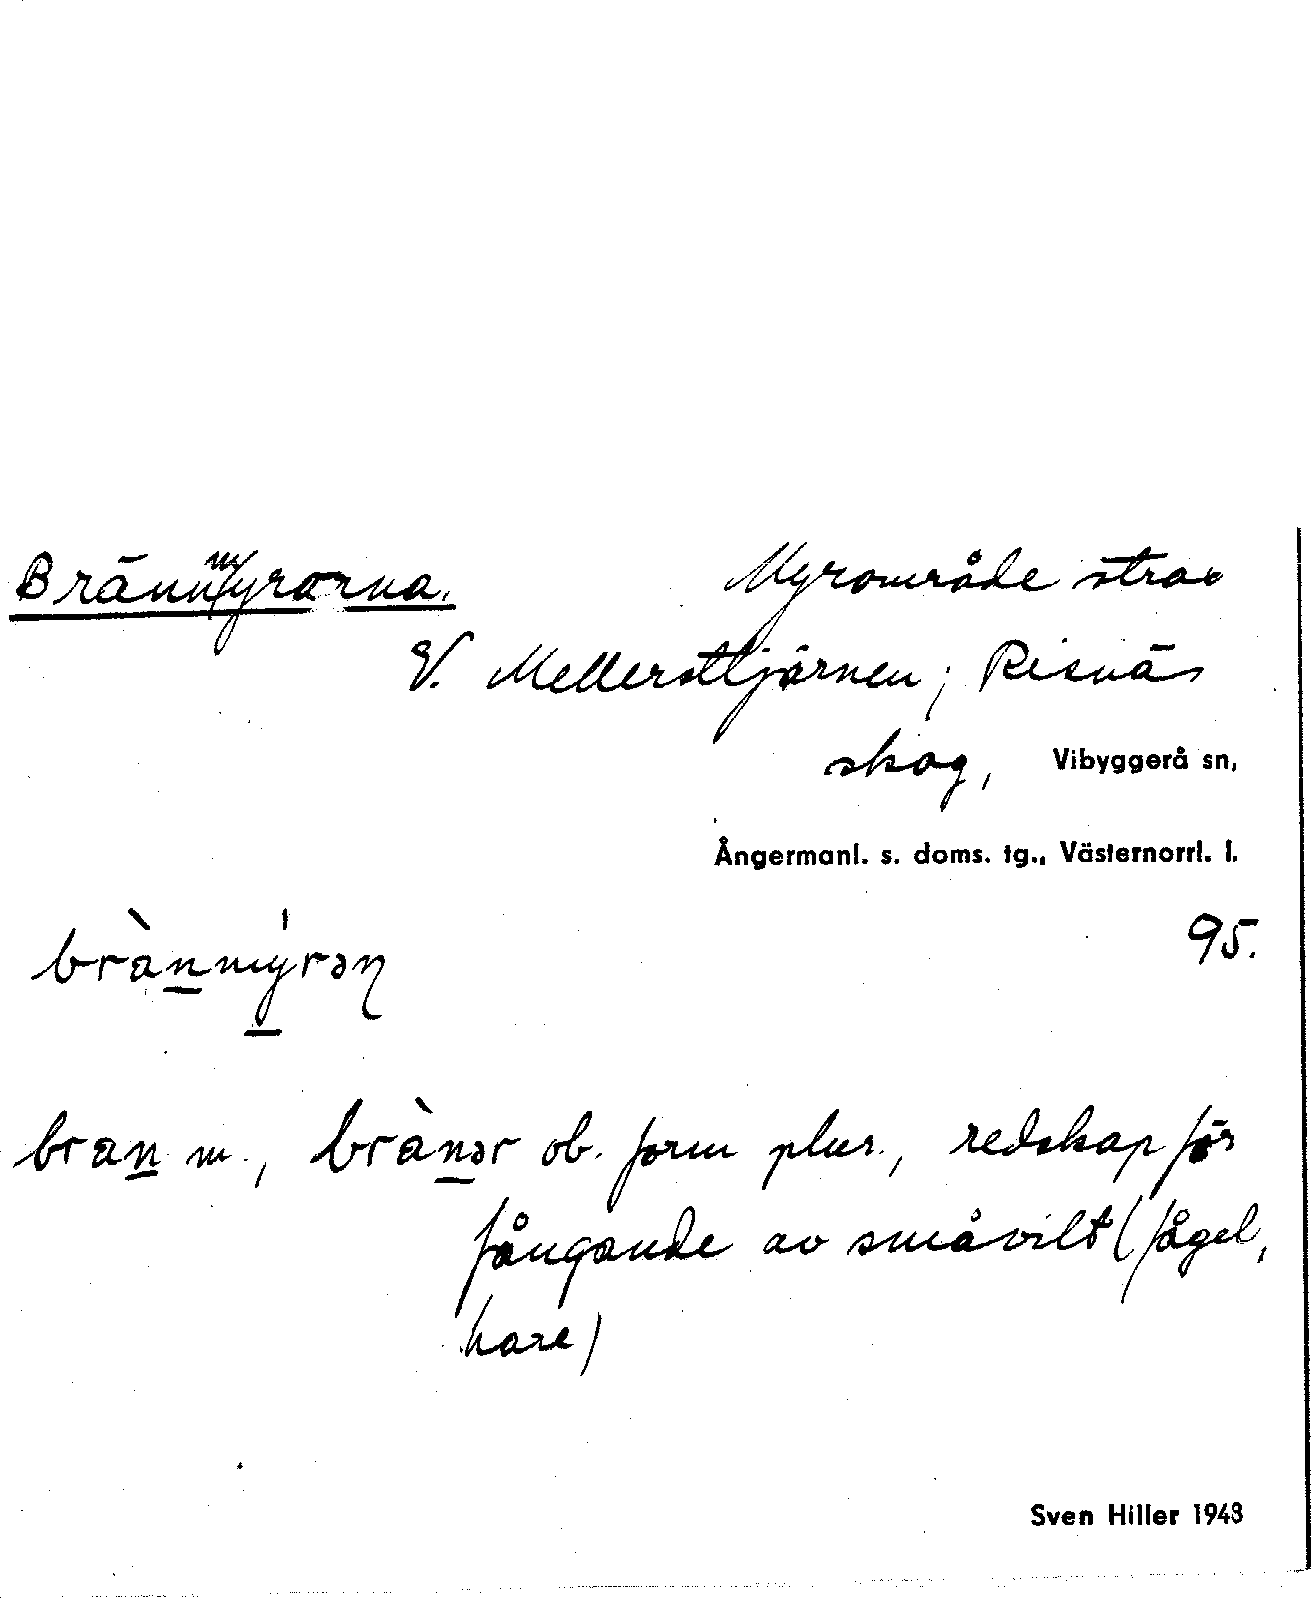 Brännmyrorna. Myrområde strax
V. Mellersttjärnen; Risnäs
skog, Vibyggerå sn,
Ångermanl. s. doms. tg., Västernorrl. l.
95.
brànmýrəɳ
bran m., brànər ob. form plur., redskap för
fångande av småvilt (fågel,
hare)
Sven Hiller 1943